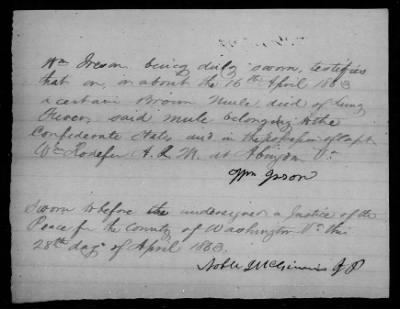 Wm Ireson being duly sworn, testifies
that on, or about the 16th April 1863
a certain Brown Mule, died of Lung
Fever, said mule belonging to the
Confederate States and in the possession of Capt.
Wm Rodefer A. Q. M. at Abingdon Va
Wm Ireson
Sworn to before the undersigned a Justice of the
Peace for the County of Washington Va this
28th day of April 1863.
Noble J McGinnis J P